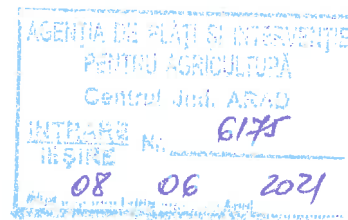 AGENȚIA DE PLĂȚI ȘI INTERVENȚIE
PENTRU AGRICULTURĂ
Centrul Jud. ARAD
INTRARE
IEȘIRE Nr. 6175
08 06 2021